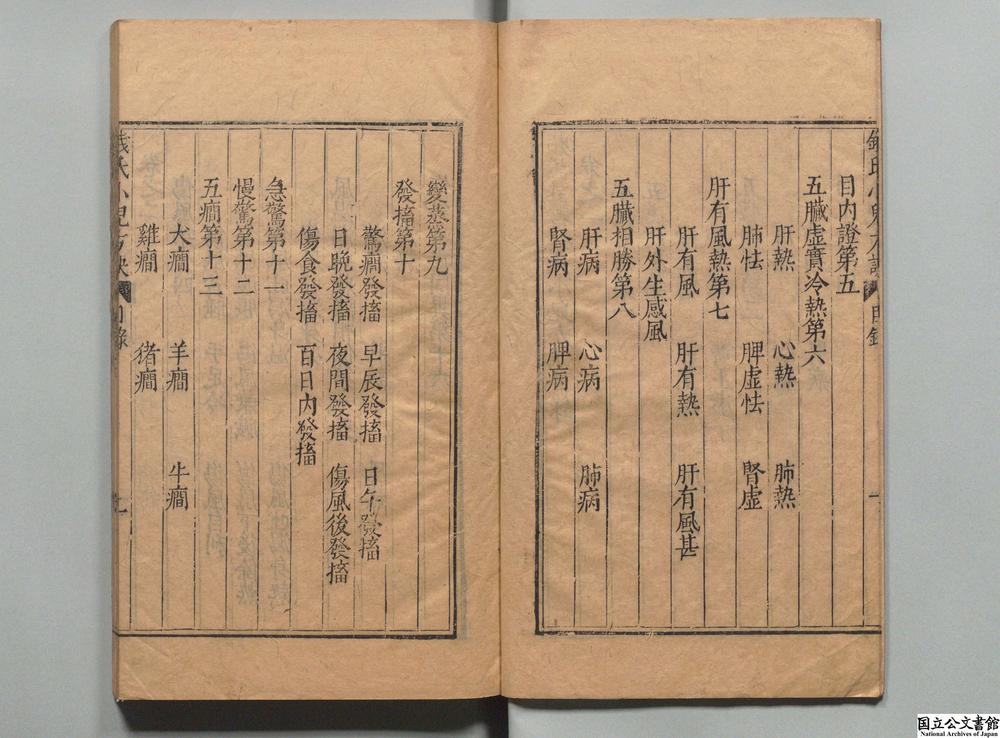 目内證第五
五臟虛實冷熱第六
肝熱 心熱 肺熱
肺怯 脾虛怯 腎虛
肝有風熱第七
肝有風 肝有熱 肝有風甚
肝外生感風
五臟相勝第八
肝病 心病 肺病
腎病 脾病
變蒸第九
發搐第十
驚癇發搐 早辰發搐 日午發搐
日晚發搐 夜間發搐 傷風後發搐
傷食發搐 百日內發搐
急驚第十一
慢驚第十二
五癇第十三
犬癇 羊癇 牛癇
雞癇 猪癇
錢氏小兒方訣 目錄
国立公文書館
National Archives of Japan